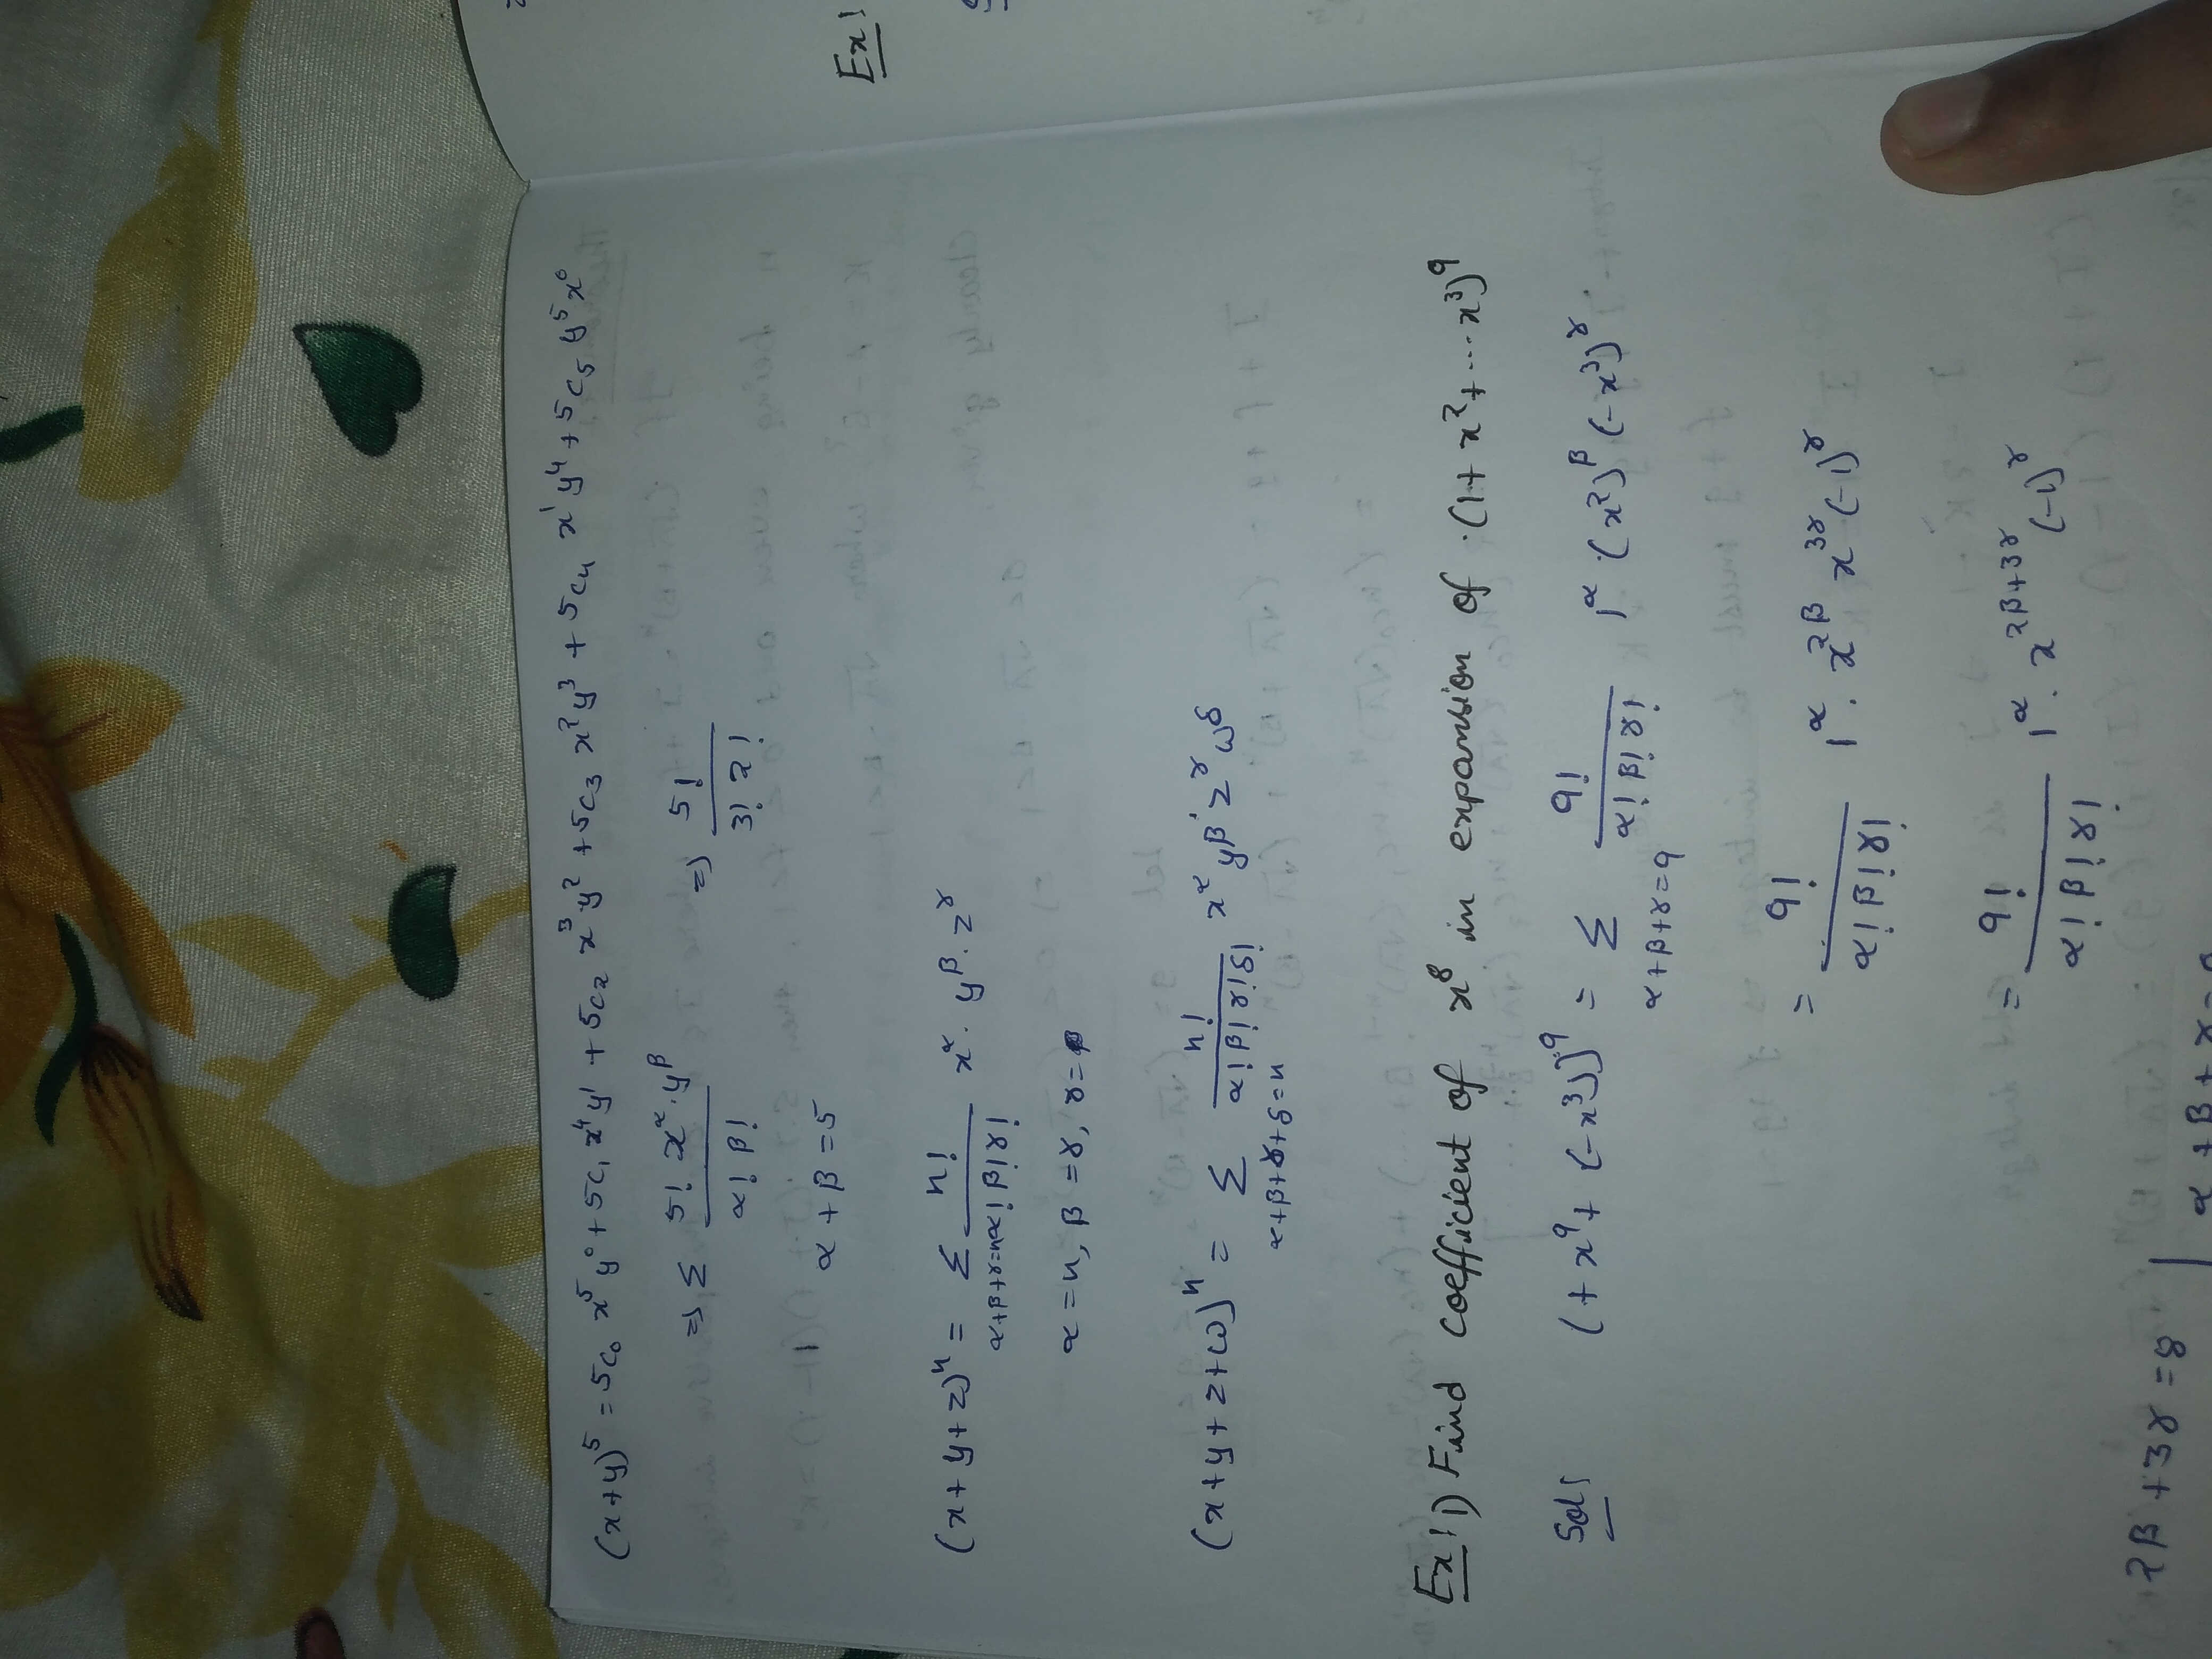 (x+y)⁵ = 5c₀ x⁵y⁰ + 5c₁ x⁴y¹ + 5c₂ x³y² + 5c₃ x²y³ + 5c₄ x¹y⁴ + 5c₅ y⁵x⁰
=> Σ 5! x^α·y^β / α! β! => 5! / 3! 2!
α + β = 5
(x+y+z)ⁿ = Σ n! / α! β! γ! x^α · y^β · z^γ
α+β+γ=n
α = n, β = γ, γ =
(x+y+z+ω)ⁿ = Σ n! / α! β! γ! δ! x^α y^β z^γ ω^δ
α+β+γ+δ=n
Ex! 1) Find coefficient of x⁸ in expansion of (1+x²+...x³)⁹
Sol: (+x⁹+(-x³)]⁹ = Σ 9! / α! β! γ! 1^α ·(x²)^β (-x³)^γ
α+β+γ=9
= 9! / α! β! γ! 1^α . x^2β x^3γ (-1)^γ
= 9! / α! β! γ! 1^α . x^2β+3γ (-1)^γ
2β+3γ=8 | α+β+γ=9
Ex!